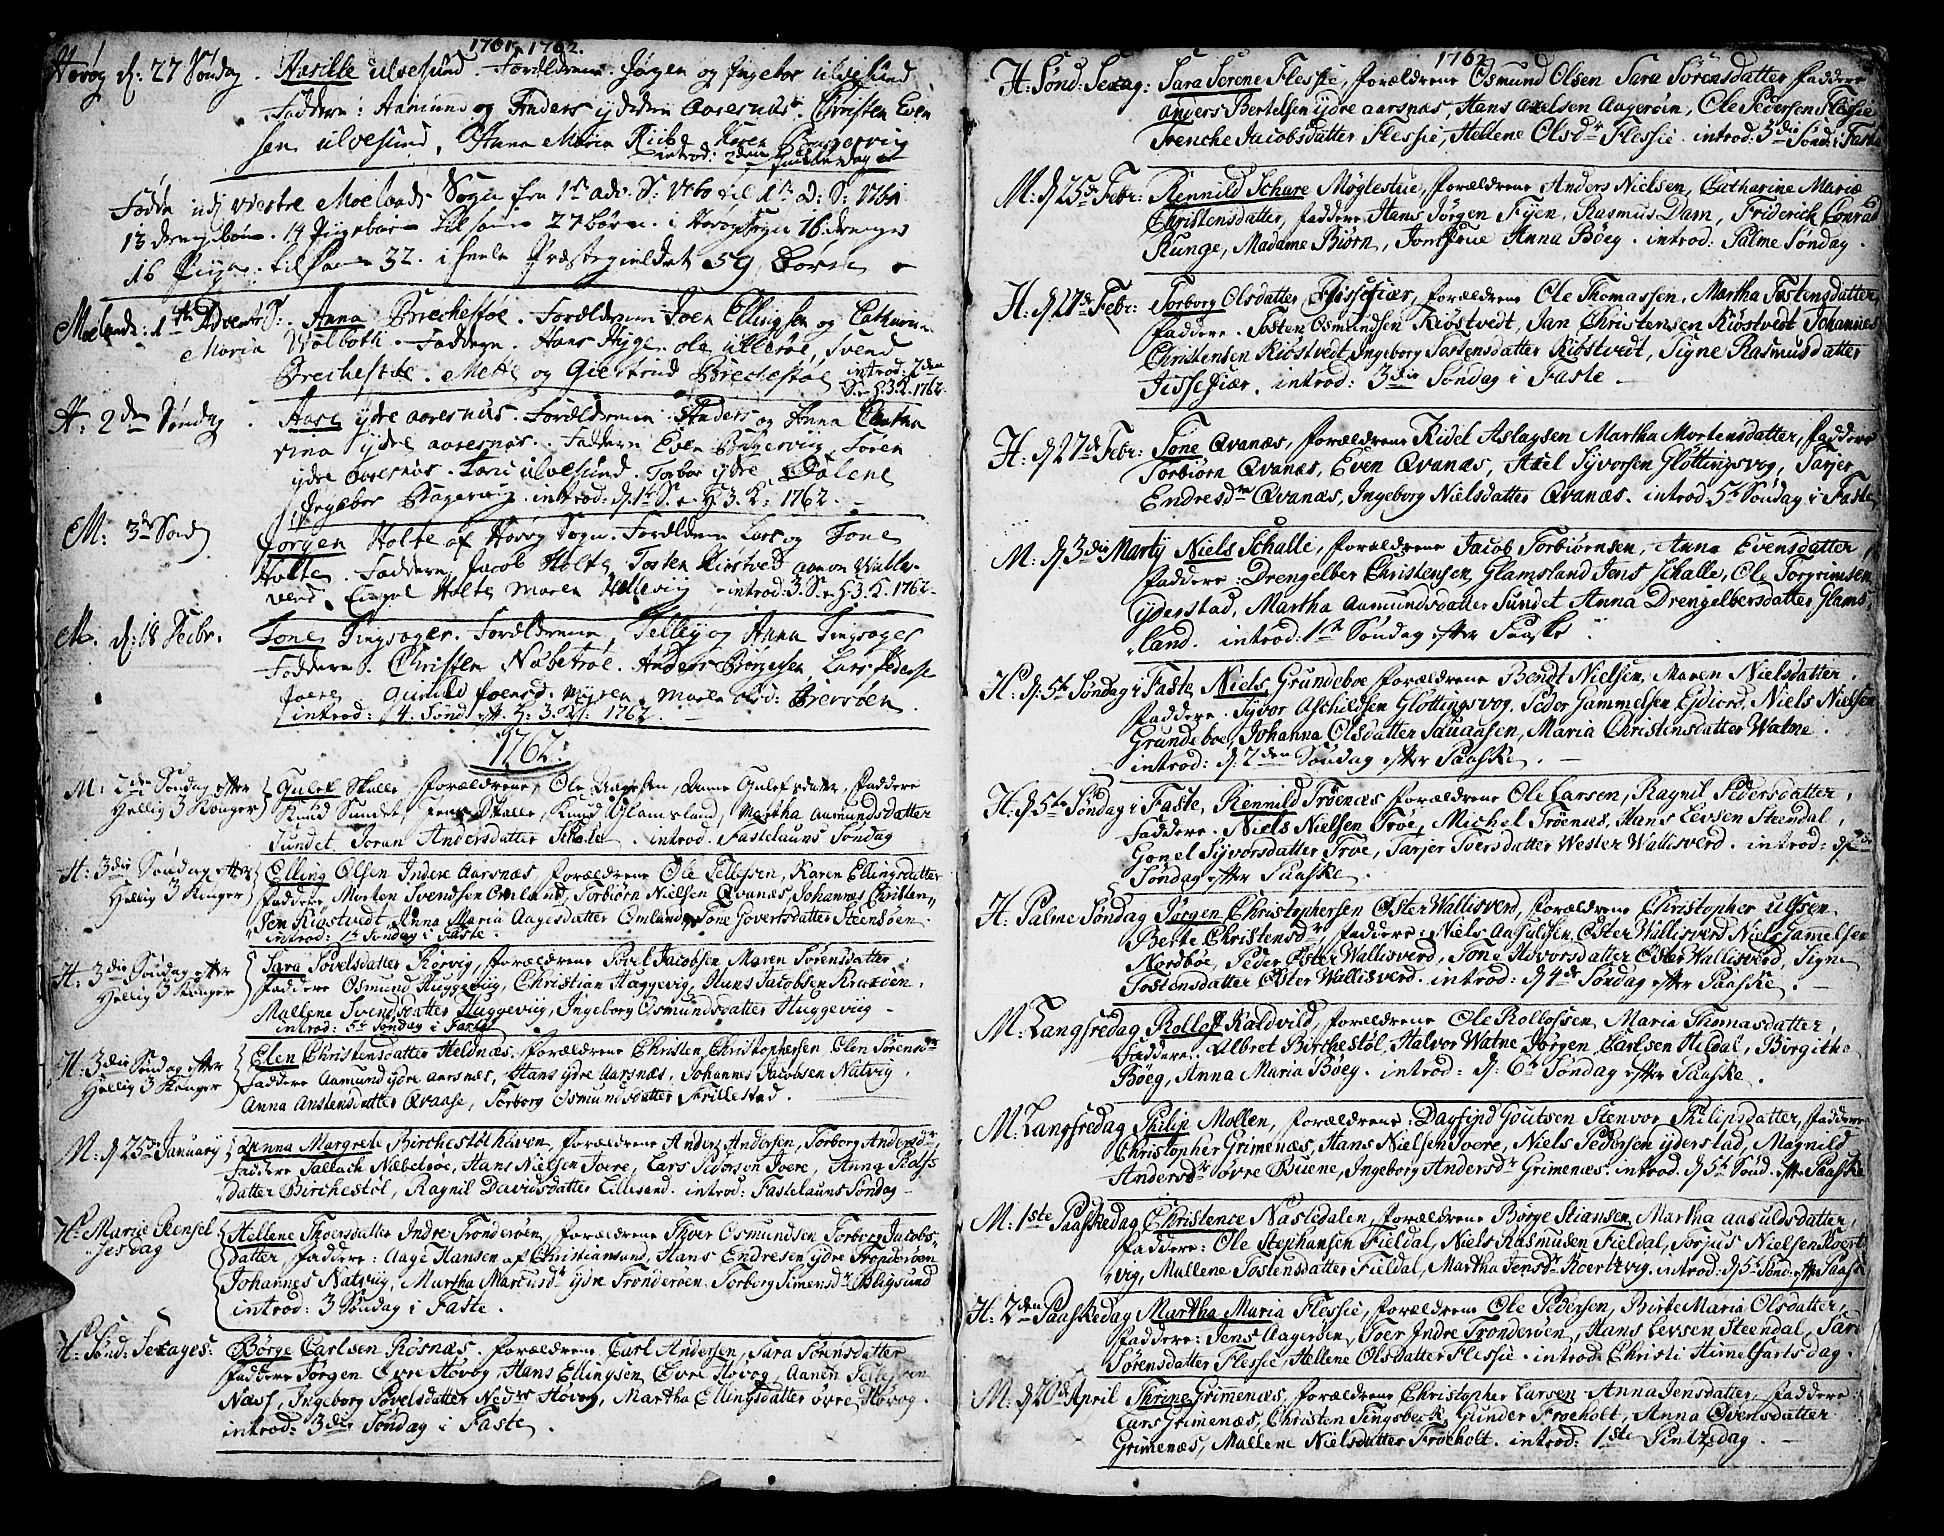 1761, 1762.
Høvog d: 27 Søndag. Aasille ulvesund. Forældrene. Jørgen og Ingebor ulvesund
Faddere: Aamund og Anders ydre Aaresnæs. Christen Even
sen ulvesund, Anna Maria Riibe Karen
introd: 2den
Fødde udj vestre Moelands Sogn fra 1ste adv. S: 1760 til 1ste A: S: 1761
13 drengebørn. 14 Pigebørn tilsamen 27 børn. i Høvogs Sogn 16 drenge
16 Piger. tilsam 32. i heele Præstegieldet 59 Børn
Moelands: 1ste Advent S: Anna Brechestøe. Forældrene Joen Ellingsen og Cathrin
Maria Wolboth. Faddern. Hans Hyge. ole ullerøe, Svend
Brechestøe. Mette og Giertrud Brechestøe introd: 2den
S. e. H. 3. K. 1762
H. 2den Søndag. Aase ydre aaresnæs. Forældrene Anders og Anna Catha
rina ydre aaresnæs. Faddern Even Søren
ydre aaresnæs. ulvesund. Torbor ydre
Ingebor introd: d. 1ste S. e. H. 3. K: 1762.
M: 3die Sønd Jørgen Holte af Høvog Sogn. Forældrene Lars og Tone
Holte. Faddern Jacob Holte Tosten Kiøstved
Holte Maren introd: 3. S. e. H. 3. K. 1762.
M. d: 18 Tone Tingsager. Forældrene, Tellev og Anna Tingsager
Faddern. Christen Næbetrøe. Anders Børgesen, Lars Pederse
Joere. Gunild Joensd. Myren. Maren
introd: 4. Sønd: eft. H: 3. K: 1762.
1762.
M: 2den Søndag efter Gulek Skalle, forældrene, Ole Anne faddere
Hellig 3 Konger Knud Sundet, Jens Skalle, Knud Glamsland, Martha Aamundsdatter
Sundet Joran Andersdatter Skale. introd. Fastelauns Søndag
H: 3die Søndag efter Elling Olsen Indre Aarsnæs forældrene Ole Tellefsen, Karen Ellingsdatter
Hellig 3 Konger faddere, Morten Svendsen Omland, Torbiørn Nielsen Qvanæs, Johannes Christen,,
sen Kiøstvedt, Anna Maria Aagesdatter Omland, Tone Govertsdatter Steensøen.
introd: 1ste Søndag i Faste.
H: 3die Søndag efter Sara Povelsdatter Kørvig, forældrene Povel Jacobsen Maren Sørensdatter
Hellig 3 Konger faddere Osmund Huggeviig, Christian Huggevig, Hans Jacobsen Kraxøen,
Mallene Svendsdatter Huggeviig, Ingeborg Osmundsdatter Huggeviig
introd: 5te Søndag i Faste
H: 3die Søndag efter Elen Christensdatter Heldnæs. forældrene Christen Christophersen Elen Sørensdtr
Hellig 3 Konger faddere Aamund ydre Aarsnæs, Hans ydre Aarsnæs, Johannes Jacobsen Natvig,
Anna Anstensdatter Qvaase, Torborg Osmundsdatter Frillestad.
M: d: 25de January Anna Margrete Birchestøl haven, forældrene Anders Andersen, Torborg Andersdtr
faddere Sallach Næbetrøe, Hans Nielsen Joere, Lars Joere, Anna Rolfs
datter Birchestøl, Ragnil Davidsdatter Lillesand. introd: Fastelauns Søndag
H: Mariæ Rensel Hellene Thoersdatter Indre Tronderøen, forældrene Thoer Osmundsen Torborg Jacobs,,
ses dag datter, faddere: Aage Hansen af Christiansand, Hans Endresen ydre
Johannes Natviig, Martha ydre Tronderøen. Torborg Simensdtr Blegsund
introd: 3 Søndag i Faste.
H: Sønd: Sexages: Børge Carlsen Røsnæs. forældrene Carl Andersen, Sara Sørensdatter
faddere Jørgen Øvre Høvog, Hans Ellingsen, Øvre Høvog, Aanen Tellefsen
Næss, Ingeborg Povelsdatter Nedre Høvog, Martha Ellingsdatter øvre Høvog.
introd: 3die Søndag i Faste.
1762
H: Sønd: Sexag: Sara Serene Flessie, forældrene Osmund Olsen Sara Sørensdatter, faddere
Anders Bertelsen ydre aarsnæs, Hans Axelsen Aagerøen, Ole Pedersen Flessie
Trenche Jacobsdatter Flessie, Hellene Olsdr Flessie. introd: 5te Sønd: i Faste
M: d 25de Febr: Rennild Schare Møglestue, forældrene Anders Nielsen, Catharine Mariæ
Christensdatter, faddere Hans Jørgen Fyen, Rasmus Dam, Friderich Conrad
Runge, Madame Biørn, Jomfrue Anna Böeg. introd: Palme Søndag.
H. d 27de Febr: Torborg Olsdatter Tissefiær, forældrene Ole Thomassen, Martha Tostensdatter
faddere. Tosten Osmundsen Kiöstvedt, Jan Christensen Kiöstvedt Johannes
Christensen Kiöstvedt, Ingeborg Tostensdatter Kiöstvedt, Signe Rasmusdatter
Tissefiær. introd: 3die Søndag i Faste
H: d 27de Febr: Tone Qvanæs, forældrene Kidel Aslagsen Martha Mortensdatter, faddere
Torbiørn Qvanæs, Even Qvanæs, Axel Syvorsen Gløttingsvog, Tarjer
Endresdtr Qvanæs, Ingeborg Nielsdatter Qvanæs. introd. 5te Søndag i Faste
M: d 3die Martij Niels Schalle, forældrene Jacob Torbiørnsen, Anna Evensdatter
faddere: Drengelber Christensen Glamsland Jens Schalle, Ole Torgrimsen
yderstad, Martha Aamundsdatter Sundet Anna Drengelbersdatter Glams,,
land. introd: 1ste Søndag efter Paaske
H: d: 5te Søndag i Faste, Niels Grundeboe forældrene Bendt Nielsen, Maren Nielsdatter.
faddere. Syvor Aschildsen Gløttingsvog, Peder Gammelsen Eidiord, Niels Nielsen
Grundeboe, Johanna Olsdatter Maria Christensdatter Watne.
introd: d: 2den Søndag efter Paaske.
H: d 5te Søndag i Faste, Rennild Trøenæs forældrene Ole Larsen, Ragnil Pedersdatter,
Faddere. Niels Nielsen Trøe, Michel Trøenæs, Hans Levsen Steendal
Gonel Syvorsdatter Trøe, Tarjer Toersdatter Wester Wallisverd. introd: d 3die
Søndag efter Paaske.
H: Palme Søndag Jørgen Christophersen Øster Wallisverd, forældrene Christopher ulfsen
Berte Christensdr faddere: Niels Aasulfsen, Øster Wallisverd Niels Gamelsen
Nordbøe, Peder Øster Wallisverd, Tone Hovorsdatter Øster Wallisverd, Signe
Tostensdatter Øster Wallisverd. introd: d 4de Søndag efter Paaske.
M: Langfredag Rollof Kaldvild, forældrene Ole Rollofsen Maria Thomasdatter,
faddere: Albret Birchestøl, Halvor Watne Jørgen Carlsen Hildal, Birgithe
Böeg, Anna Maria Böeg. introd: d: 6te Søndag efter Paaske.
M: Langfredag Philip Mollen, forældrene Dagfind Goutsen Stenvor Philipsdatter, faddere
Christopher Grimenæs, Hans Nielsen Joere, Niels Pedersen yderstad, Magnild
Andersdr øvre Buene, Ingeborg Andersdr Grimenæs. introd. d 5te Sønd. eft Paaske
M: 1ste Paaskedag Christence Nastedalen, forældrene Børge Stiansen, Martha aasuldsdatter,
faddere: Ole Stephansen Fieldal, Niels Rasmusen Fieldal, Torjus Nielsen Koert
vig, Mallene Tostensdatter Fieldal, Martha Jensdr Koertvig. introd: d 5te Sønd. eft Paaske
H: 2den Paaskedag Martha Maria Flessie, forældrene Ole Pedersen, Birte Maria Olsdatter,
faddere: Jens Aagerøen, Toer Indre Tronderøen, Hans Levsen Steendal, Sara
Sørensdatter Flessie, Hellene Olsdatter Flessie. introd: Christi Himelfarts dag.
M: d 20de April Thrine Grimenæs, forældrene Christopher Larsen Anna Jensdatter, faddere
Lars Grimenæs, Christen Tingsbeck, Gunder Frøeholt, Anna Ovensdatter
Grimenæs, Mallene Nielsdatter Frøeholt. introd: 1ste Pintzdag.